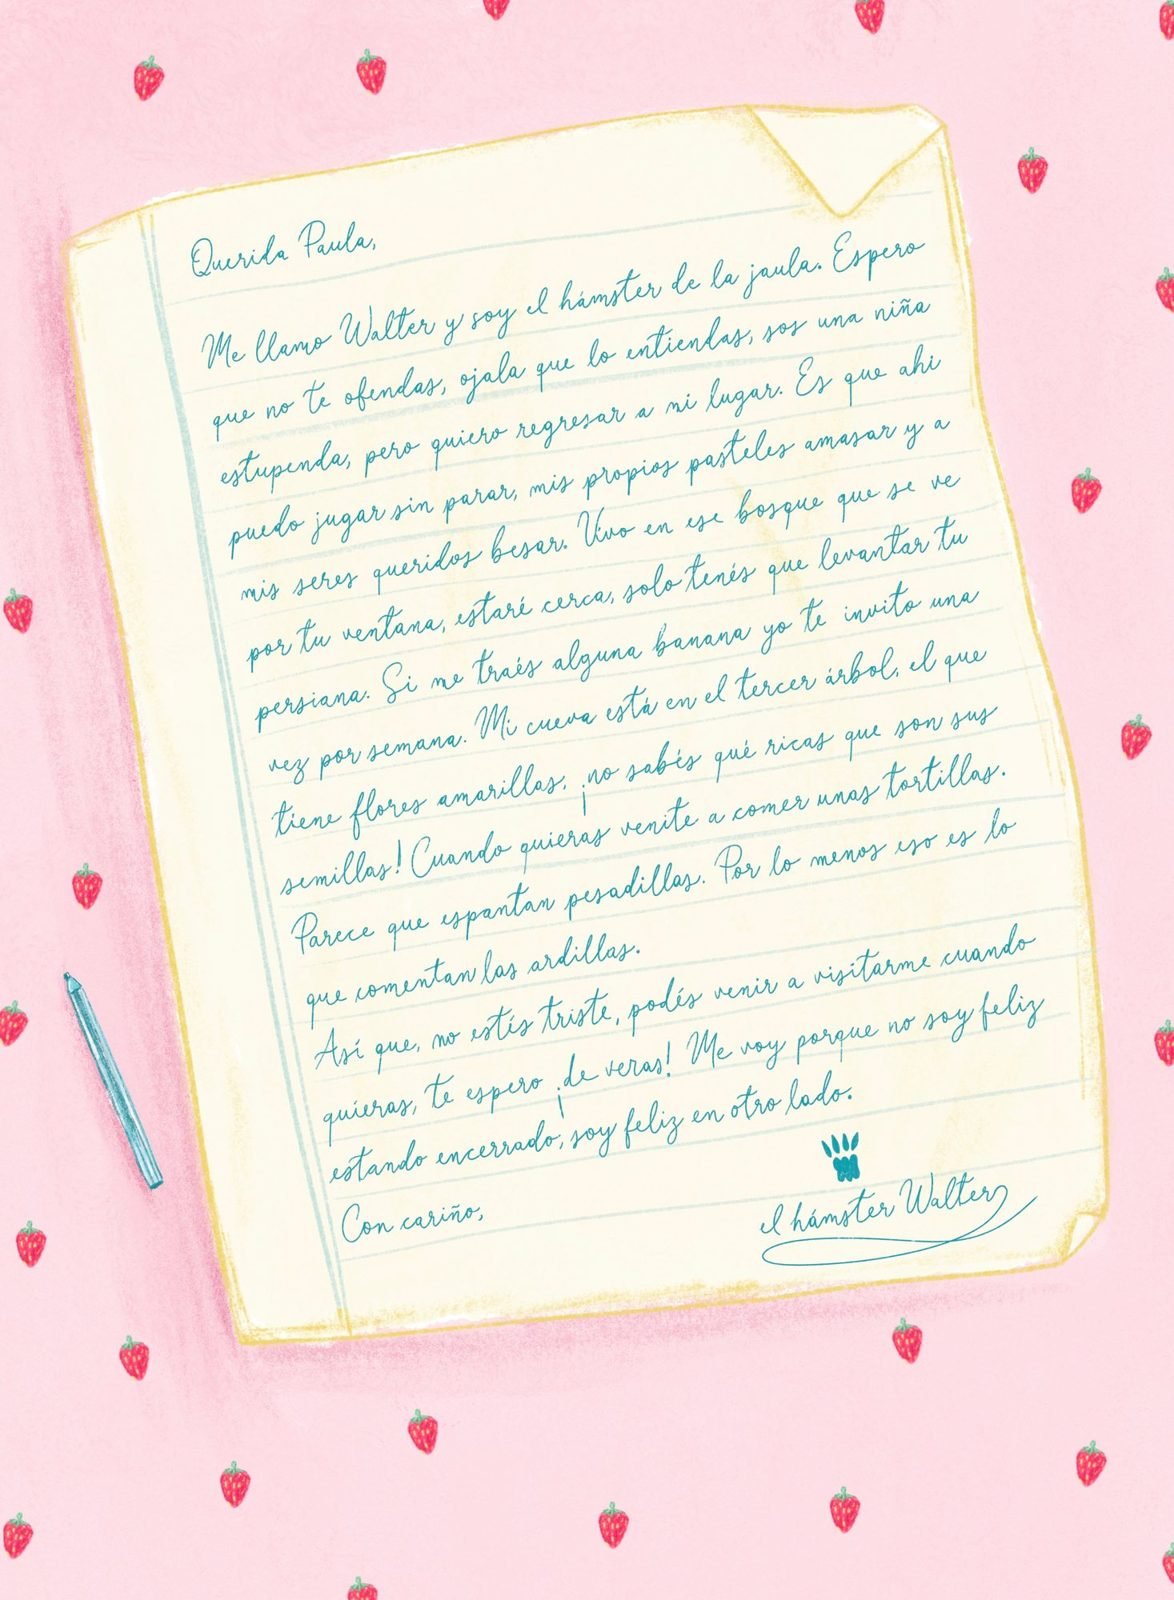 Querida Paula,
Me llamo Walter y soy el hámster de la jaula. Espero
que no te ofendas, ojala que lo entiendas, sos una niña
estupenda, pero quiero regresar a mi lugar. Es que ahi
puedo jugar sin parar, mis propios pasteles amasar y a
mis seres queridos besar. Vivo en ese bosque que se ve
por tu ventana, estaré cerca, solo tenés que levantar tu
persiana. Si me traés alguna banana yo te invito una
vez por semana. Mi cueva está en el tercer árbol, el que
tiene flores amarillas, ¡no sabés qué ricas que son sus
semillas! Cuando quieras venite a comer unas tortillas.
Parece que espantan pesadillas. Por lo menos eso es lo
que comentan las ardillas.
Así que, no estés triste, podés venir a visitarme cuando
quieras, te espero ¡de veras! Me voy porque no soy feliz
estando encerrado, soy feliz en otro lado.
Con cariño,
el hámster Walter